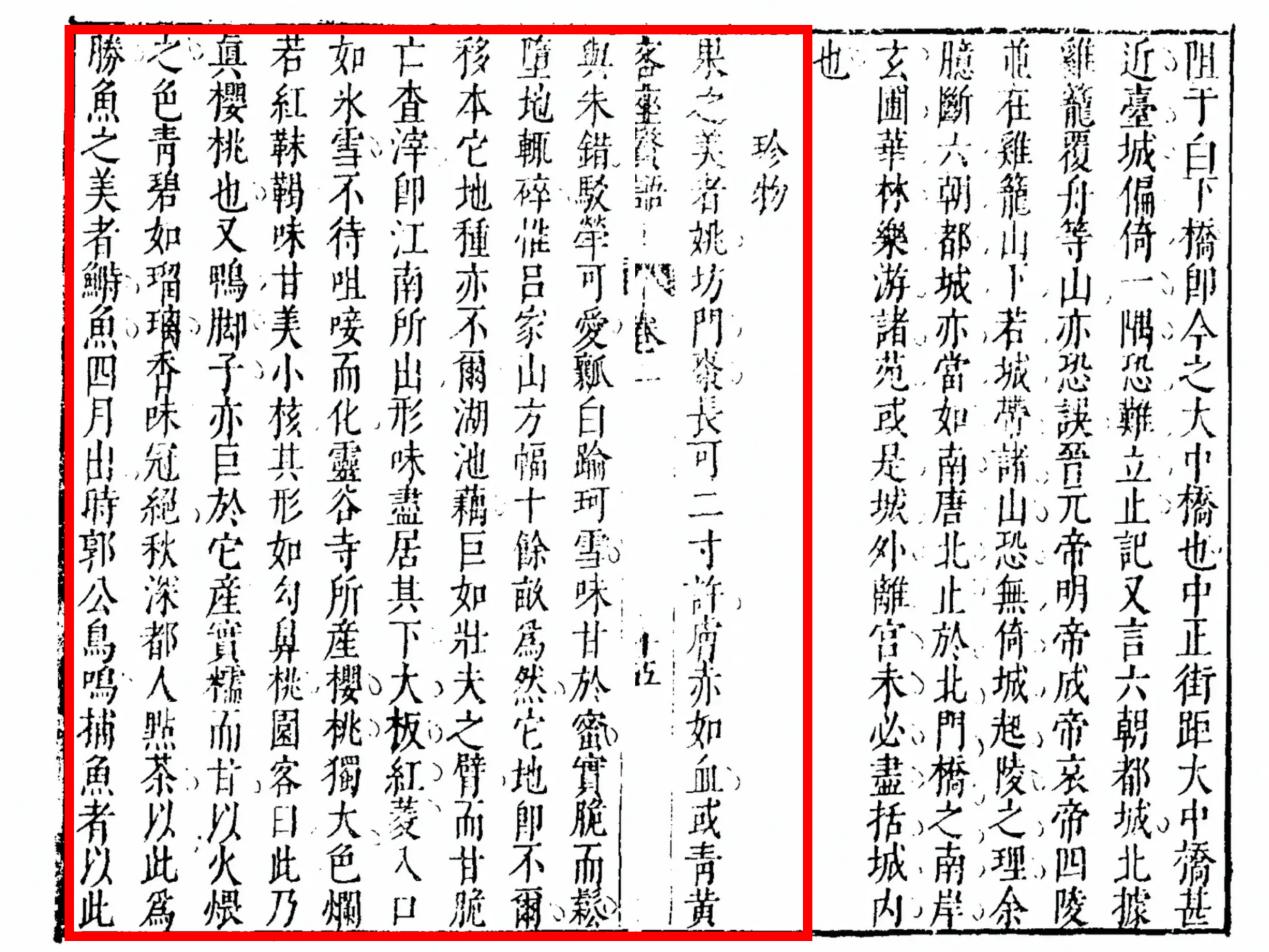 阻于白下橋卽今之大中橋也中正街距大中橋甚
近臺城偏倚一隅恐難立止記又言六朝都城北據
雞籠覆舟等山亦恐訣晉元帝明帝成帝哀帝四陵
並在雞籠山下若城帶諸山恐無倚城起陵之理余
臆斷六朝都城亦當如南唐北止於北門橋之南岸
玄圃華林樂游諸苑或是城外離宮未必盡括城內
也
珍物
果之美者姚坊門棗長可二寸許膚赤如血或靑黃
客座贅語 卷一 十五
與朱錯駁犖可愛瓤白踰珂雪味甘於蜜實脆而鬆
墮地輒碎惟呂家山方幅十餘畝爲然它地卽不爾
移本它地種亦不爾湖池藕巨如壯夫之臂而甘脆
亡査滓卽江南所出形味盡居其下大板紅菱入口
如氷雪不待咀唼而化靈谷寺所產櫻桃獨大色爛
若紅靺鞨味甘美小核其形如勾鼻桃園客曰此乃
眞櫻桃也又鴨脚子亦巨於它產實糯而甘以火煨
之色靑碧如瑠璃香味冠絕秋深都人點茶以此爲
勝魚之美者鰣魚四月出時郭公鳥鳴捕魚者以此